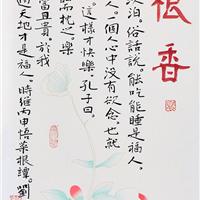 根香
泊。俗話說。能吃能睡是福人。
人。個人心中没有欲念。也就
這樣才快樂。孔子曰
而枕之。樂
富且貴。於我
天地才是福人。時維丙申悟菜根譚。劉